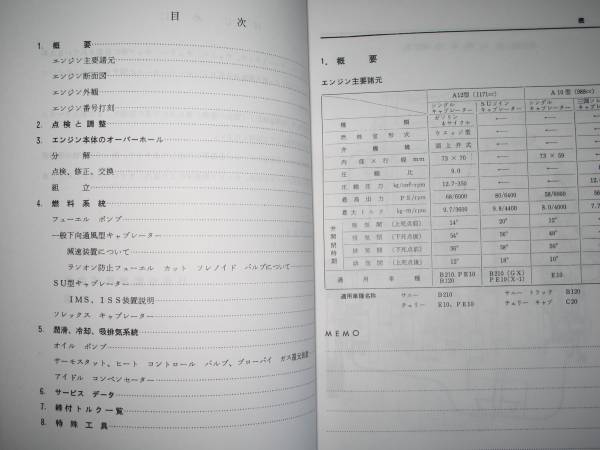 目 次
1. 概 要
エンジン主要諸元
エンジン断面図
エンジン外観
エンジン番号打刻
2. 点検と調整
3. エンジン本体のオーバーホール
分 解
点検、修正、交換
組 立
4. 燃料系統
フューエル ポンプ
一般下向通風型キャブレーター
減速装置について
ランオン防止フューエル カット ソレノイド バルブについて
SU型キャブレーター
IMS、ISS装置説明
ソレックス キャブレーター
5. 潤滑、冷却、吸排気系統
オイル ポンプ
サーモスタット、ヒート コントロール バルブ、ブローバイ ガス還元装置
アイドル コンペンセーター
6. サービス データ
7. 締付トルク一覧
8. 特殊工具
概
1. 概 要
エンジン主要諸元
A12型 (1171cc) A10型 (988cc)
シングルキャブレーター SUツインキャブレーター シングルキャブレーター
種 類 ガソリン4サイクル ← ←
燃焼室形式 ウエッジ型 ← ←
弁機構 頭上弁式 ← ←
内径×行程 mm 73×70 ← 73×59
圧縮比 9.0 ← ←
圧縮圧力 kg/cm²-rpm 12.7-350 ← ←
最高出力 PS/rpm 68/6000 80/6400 58/6000
最大トルク kg-m/rpm 9.7/3600 9.8/4400 8.0/4000
弁開閉時期 吸気開 (上死点前) 14° 20° 12°
吸気閉 (下死点後) 54° 56° 48°
排気開 (下死点前) 56° 58° 50°
排気閉 (上死点後) 12° 18° 10°
適用車種 B210, PE10 B120 B210 (GX) PE10(X-1) E10
適用車種名称 サニー B210 サニー トラック B120
チェリー E10、PE10 チェリー キャブ C20
MEMO